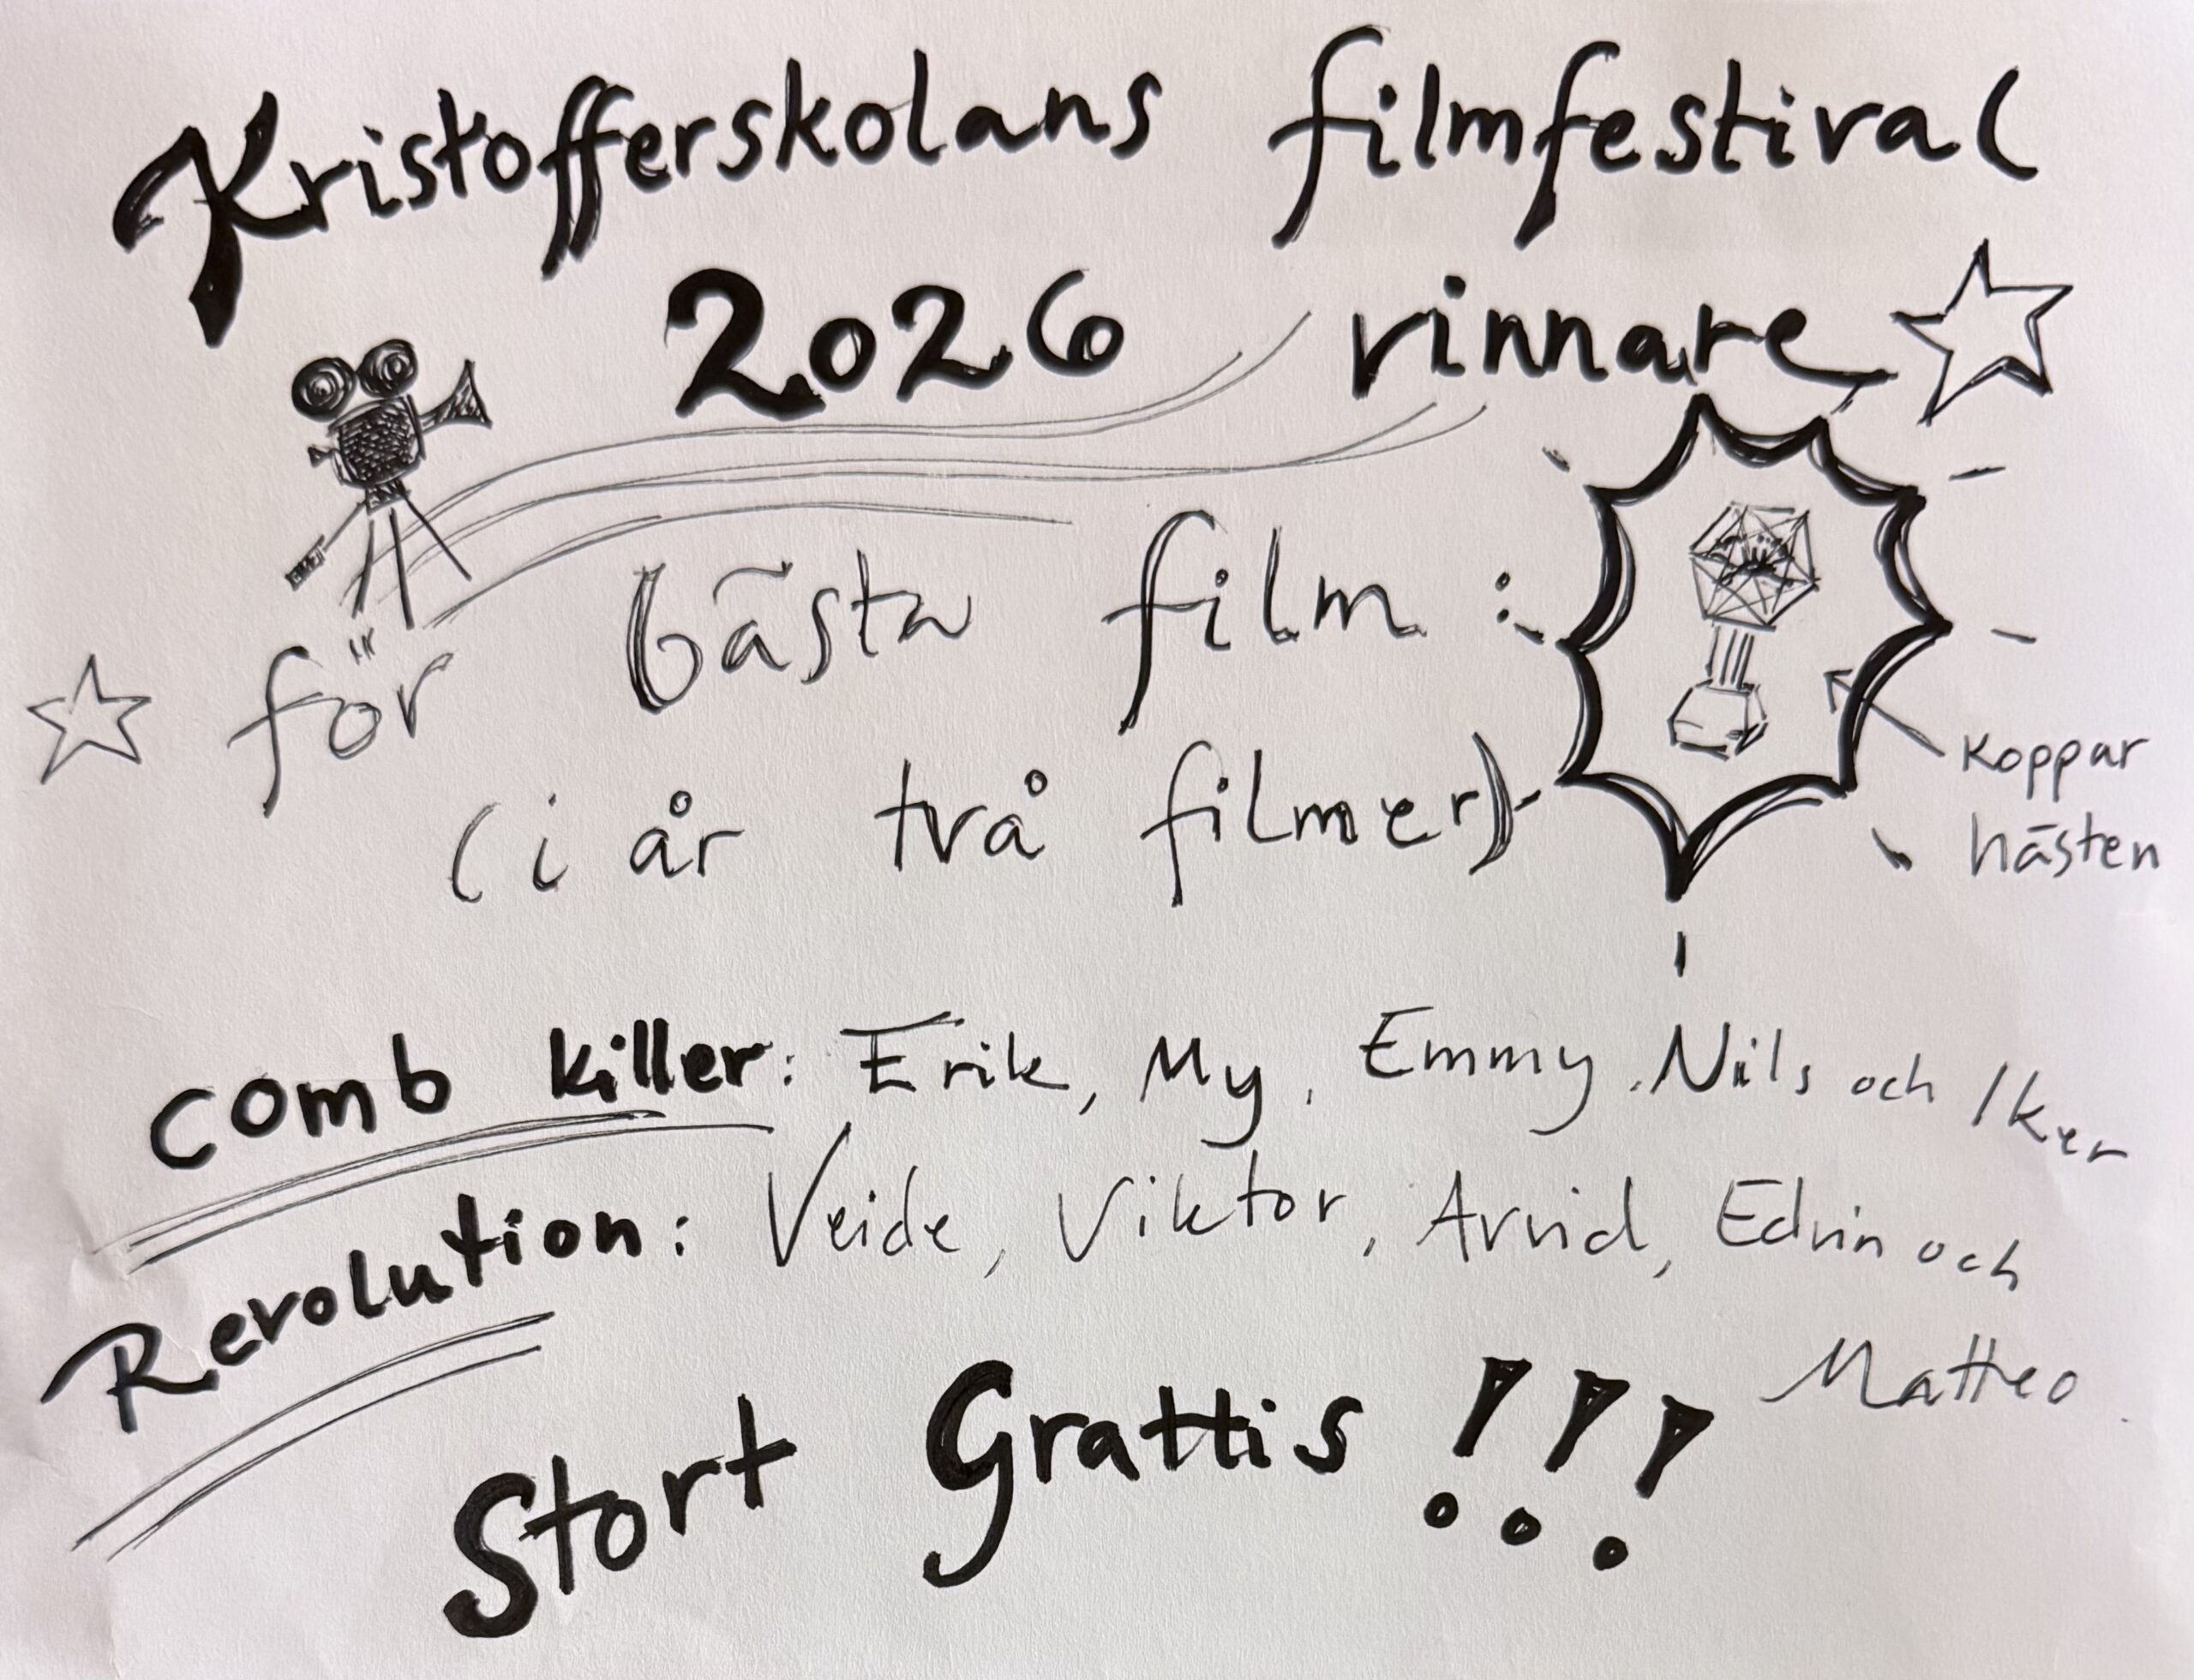 Kristofferskolans filmfestival
2026 vinnare
för bästa film :
(i år två filmer)
Koppar
hästen
Comb killer: Erik, My, Emmy, Nils och Iker
Revolution: Veide, Viktor, Arvid, Edvin och
Matteo.
Stort Grattis !!!